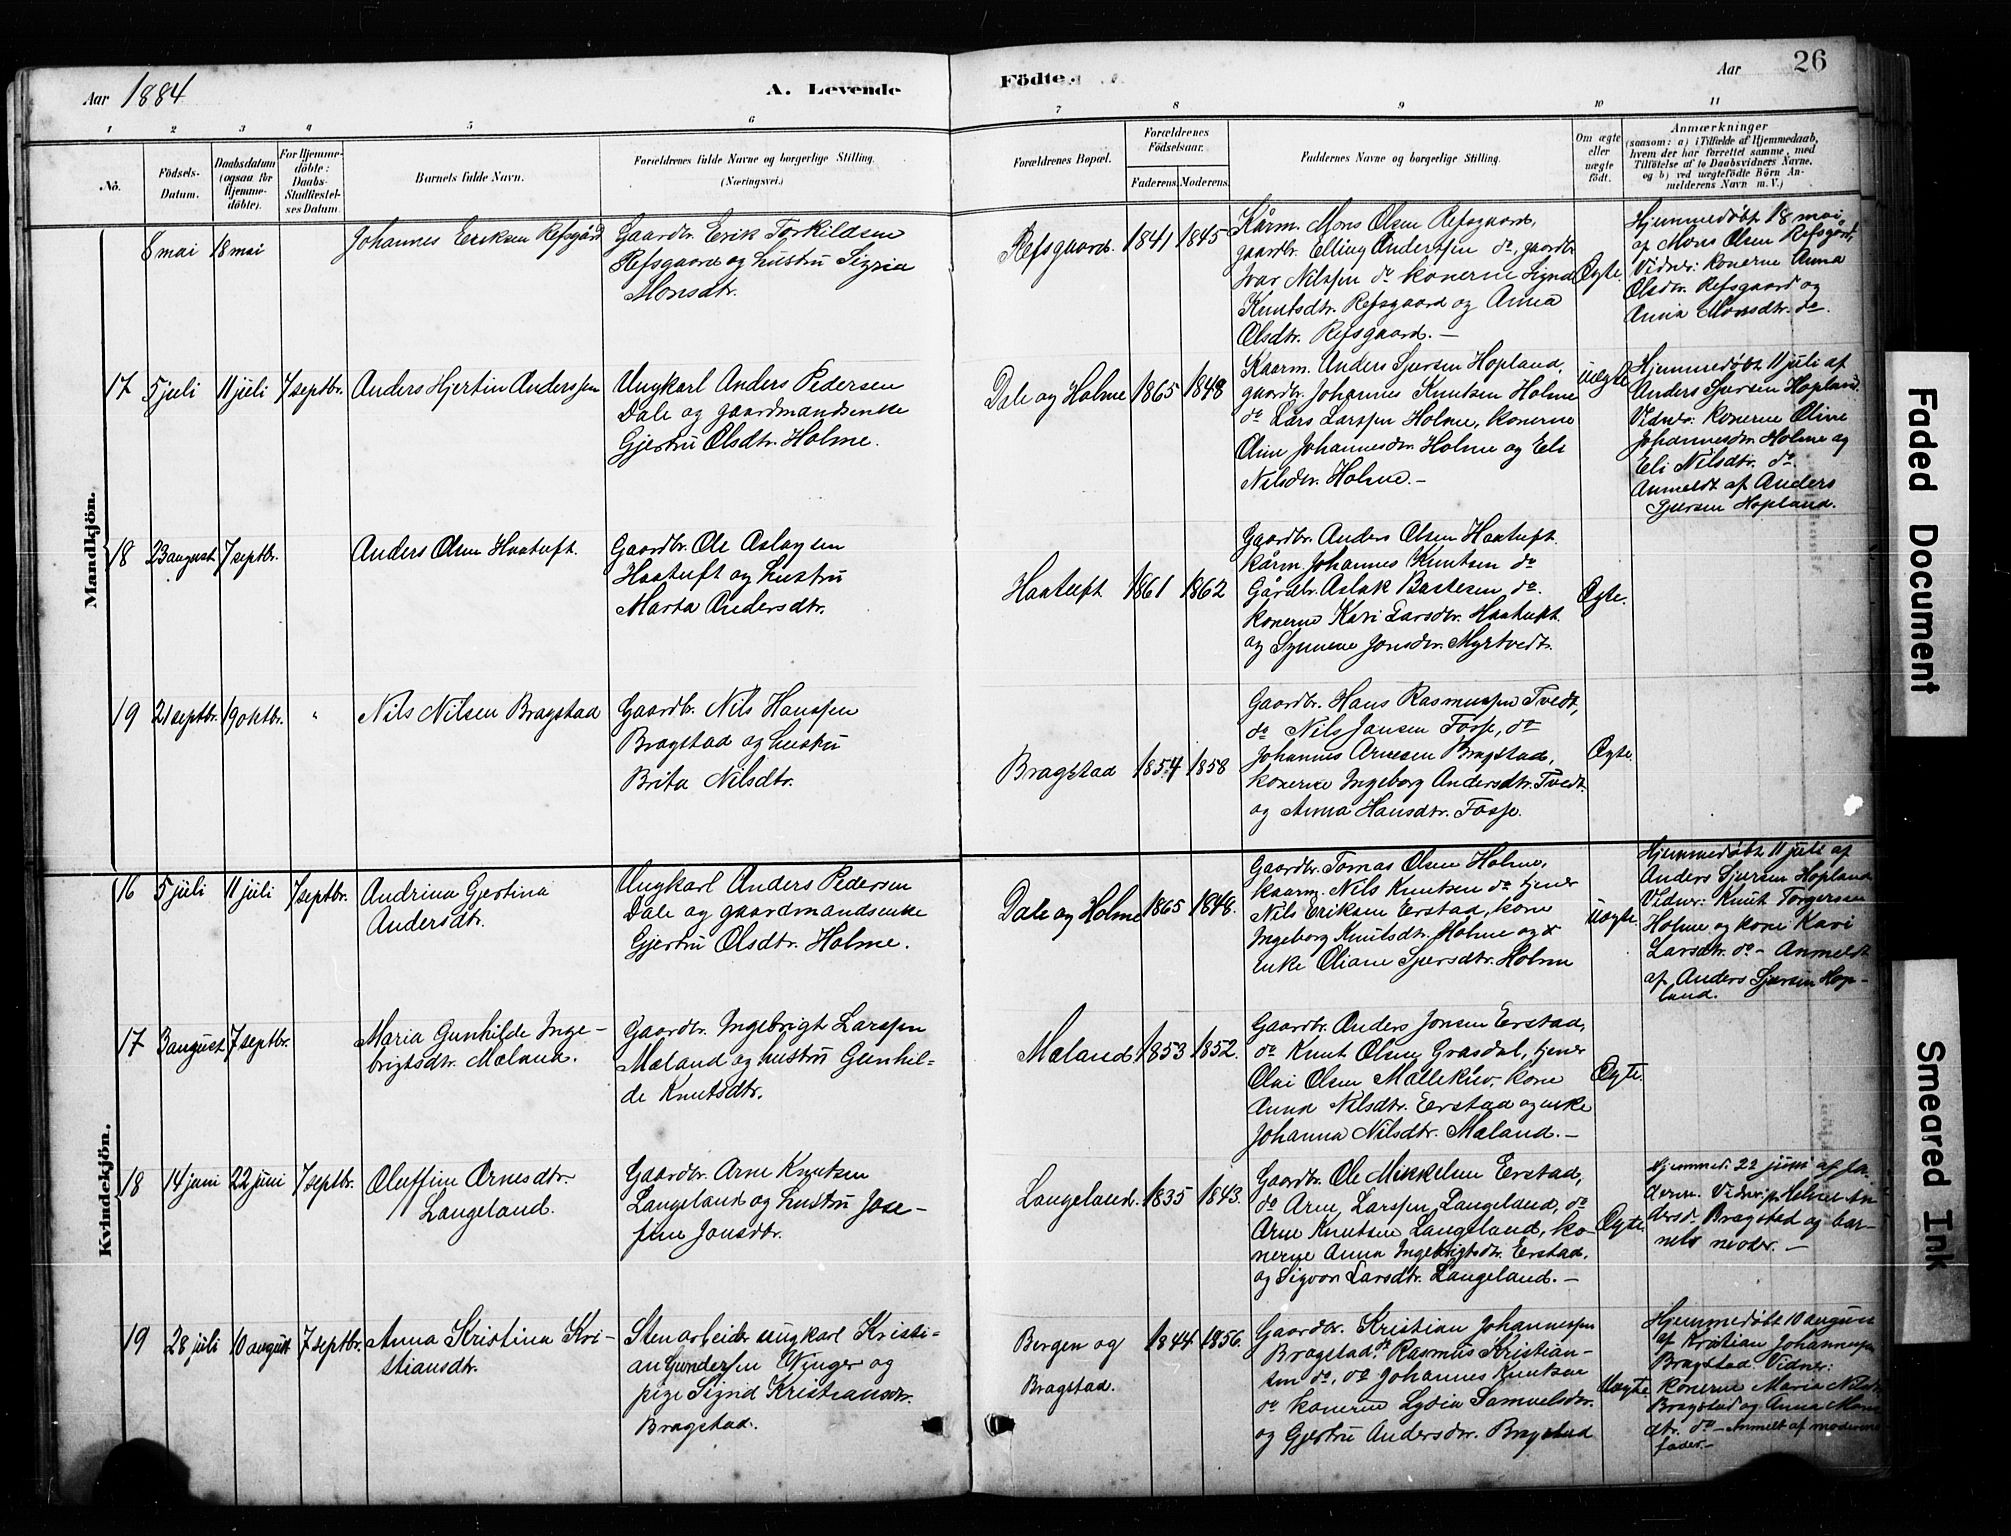 Aar 1884
A. Levende
Födte.
Aar
26
1 2 3 4 5 6 7 8 9 10 11
No.
Födsels-
Datum.
Daabsdatum
(ogsaa for
Hjemme-
döbte).
For Hjemme-
döbte:
Daabs-
Stadfæstel-
ses Datum.
Barnets fulde Navn.
Forældrenes fulde Navne og borgerlige Stilling.
(Næringsvei.)
Forældrenes Bopæl.
Forældrenes
Födselsaar.
Faderens.
Moderens.
Faddernes Navne og borgerlige Stilling.
Om ægte
eller
uægte
födt.
Anmærkninger
(saasom: a) i Tilfælde af Hjemmedaab,
hvem der har forrettet samme, med
Tilföielse af to Daabsvidners Navne,
og b) ved uægtefödte Börn An-
melderens Navn m. V.)
Mandkjön.
8 mai
18 mai
Johannes Eriksen Refsgård
Gaardbr. Erik Torkildsen
Refsgaard og hustru Sigria
Monsdtr.
Refsgaard.
1841
1845
Kårm. Mons Olsen Refsgaard,
gaardbr. Elling Anderssen do, gaardbr.
Ivar Nilssen do konerne Signa
Knutsdtr. Refsgaard og Anna
Olsdtr. Refsgaard. —
Ægte.
Hjemmedøbt 18 mai
af Mons Olsen Refsgård,
Vidner: konerne Anna
Olsdtr. Refsgaard og
Anna Monsdtr. do.
17
5 juli
11 juli
7 septbr.
Anders Hjertin Anderssen
Ungkarl Anders Pedersen
Dale og gaardmandsenke
Gjertru Olsdtr. Holme.
Dale og Holme
1865
1848
Kaarm. Anders Sjursen Hopland,
gaardbr. Johannes Knutsen Holme
do Lars Larssen Holme, konerne
Oline Johannesdtr. Holme og Eli
Nilsdtr. Holme. —
uægte
Hjemmedøbt 11 juli af
Anders Sjursen Hopland.
Vidner: konerne Oline
Johannesdtr. Holme og
Eli Nilsdtr. do.
Anmeldt af Anders
Sjursen Hopland.
18
23 august
7 septbr.
Anders Olsen Haatuft.
Gaardbr. Ole Aslagsen
Haatuft og hustru
Marta Andersdtr.
Haatuft
1861
1862
Gaardbr. Anders Olsen Haatuft
kårm. Johannes Knutsen do
Gårdbr. Aslak Bastesen do.
konerne Kari Larsdtr. Haatuft
og Synneve Jonsdtr. Myrtvedt.
Ægte.
19
21 septbr.
19 oktbr.
"
Nils Nilsen Bragstad
Gaardbr. Nils Hanssen
Bragstad og hustru
Brita Nilsdtr.
Bragstad
1854
1858
Gaardbr. Hans Rasmussen Tvedt,
do Nils Jansen Fosse, do
Johannes Arnesen Bragstad,
konerne Ingeborg Andersdtr. Tvedt
og Anna Hansdtr. Fosse.
Ægte.
Kvindekjön.
16
5 juli
11 juli
7 septbr.
Andrina Gjertina
Andersdtr.
Ungkarl Anders Pedersen
Dale og gaardmandsenke
Gjertru Olsdtr. Holme.
Dale og Holme
1865
1848.
Gaardbr. Tomas Olsen Holme,
kaarm. Nils Knutsen do tjener
Nils Eriksen Erstad, kone
Ingeborg Knutsdtr. Holme og
enke Oliane Sjursdtr. Holme
uægte.
Hjemmedøbt 11 juli af
Anders Sjursen Hopland
Vidner: Knut Torgersen
Holme og kone Kari
Larsdtr. do — Anmeldt
af Anders Sjursen Hop-
land.
17
3 august
7 septbr.
Maria Gunhilde Inge-
brigtsdtr. Mæland.
Gaardbr. Ingebrigt Larssen
Mæland og hustru Gunhil-
de Knutsdtr.
Mæland
1853
1852.
Gaardbr. Anders Jonsen Erstad,
do Knut Olsen Grasdal, tjener
Olai Olsen kone
Anna Nilsdtr. Erstad og enke
Johanna Nilsdtr. Mæland. —
Ægte.
18
14 juni
22 juni
7 septbr.
Oluffine Arnesdtr.
Langeland.
Gaardbr. Arne Knutsen
Langeland og hustru Jose-
fine Jonsdtr.
Langeland.
1835
1843.
Gaardbr. Ole Mikkelsen Erstad,
do Arne Larssen Langeland, do
Arne Knutsen Langeland, ko-
nerne Anna Ingebrigtsdtr. Erstad,
og Sigvor Larsdtr. Langeland. —
Ægte.
Hjemmed. 22 juni af fa-
deren. Vidner: p. An-
dersd. Bragstad og bar-
nets moder. —
19
28 juli
10 august
7 septbr.
Anna Kristina Kri-
stiansdtr.
Stenarbeider ungkarl Kristi-
an Gundersen Winger og
pige Sigrid Kristiansdtr.
Bragstad.
Bergen og
Bragstad.
1844
1856.
Gaardbr. Kristian Johannessen
Bragstad, do Rasmus Kristian-
sen do, do Johannes Knutsen
do konerne Lydia Samuelsdtr.
og Gjertru Andersdtr. Bragstad
Uægte.
Hjemmedøbt 10 august
af Kristian Johannessen
Bragstad. Vidner:
konerne Maria Nilsdt.
Bragstad og Anna Mons
dtr. do — Anmelt af moderens
fader. —
Faded Document
Smeared Ink